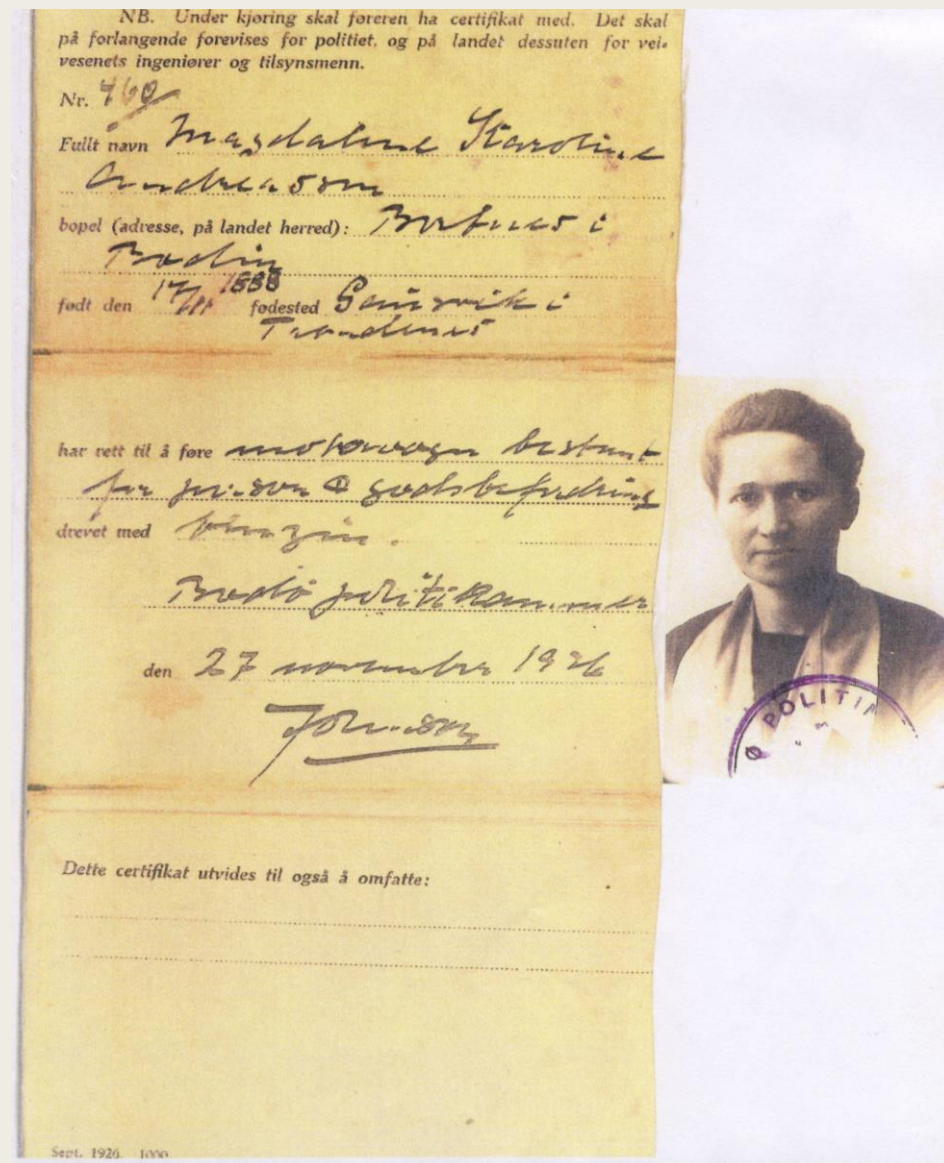 NB. Under kjøring skal føreren ha certifikat med. Det skal
på forlangende forevises for politiet, og på landet dessuten for vei-
vesenets ingeniører og tilsynsmenn.
Nr. 460
Fullt navn Magdalene Karoline
Andreassen
bopel (adresse, på landet herred): i
Bodin
født den 17/11 1888 fødested i
Trondenes
har rett til å føre motorvogn bestemt
for person & godsbefordring
drevet med benzin.
Bodø politikammer
den 27 november 1926
Dette certifikat utvides til også å omfatte:
Sept. 1926. 1000
Ø POLITI